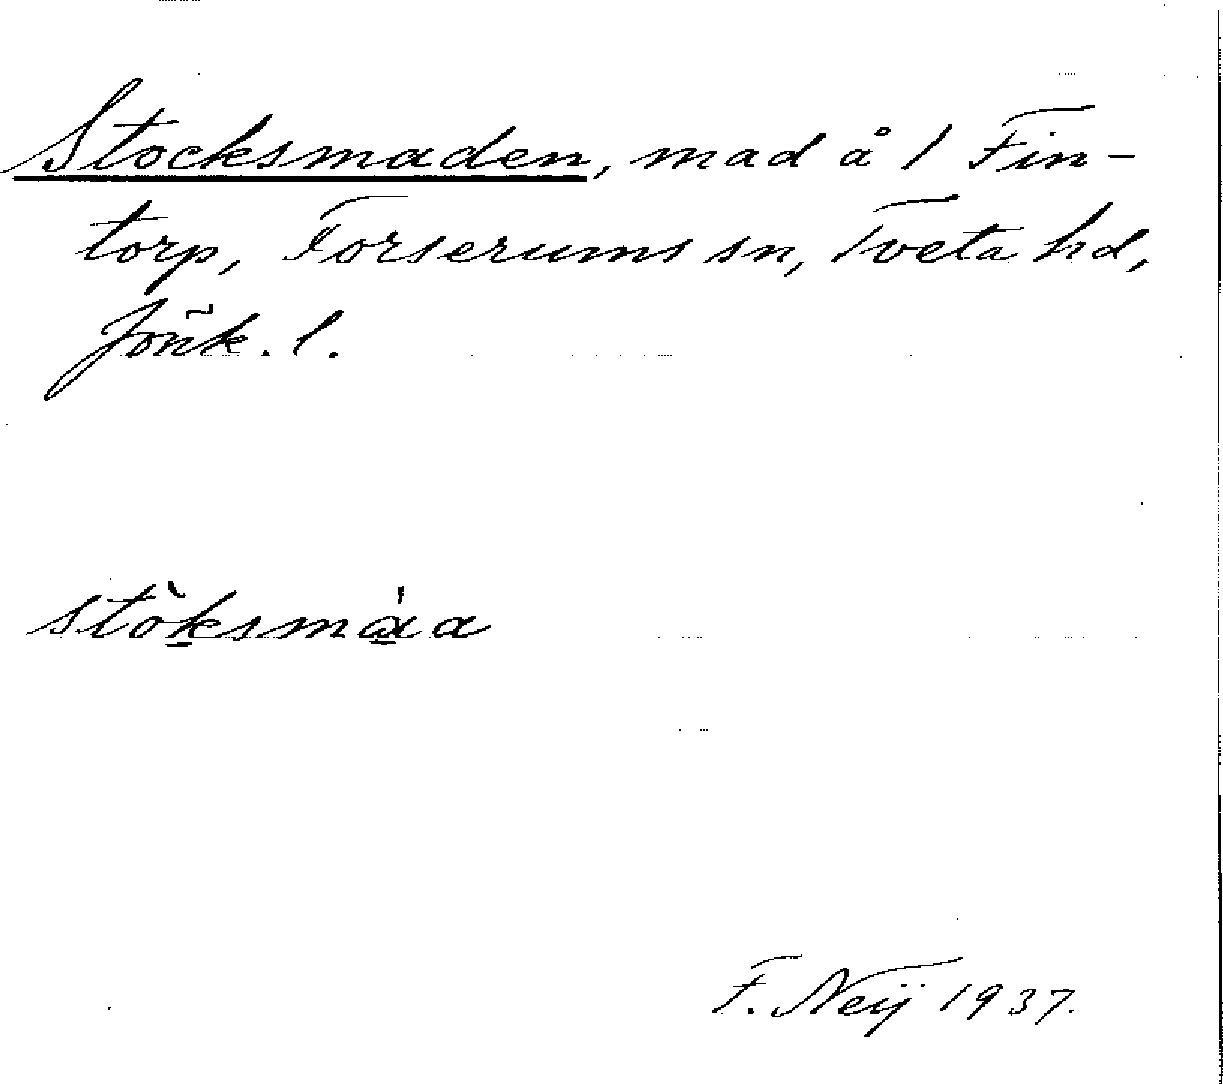 Stocksmaden, mad å 1 Fin-
torp, Forserums sn, Tveta hd,
Jönk. l.
stòksmáa
F. Neij 1937.